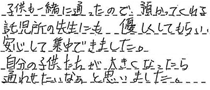 子供も一緒に通ったので、預かってくれる
託児所の先生にも 優しくしてもらい、
安心して集中できました。
自分の子供たちが大きくなったら
通わせたいなぁと思いました。